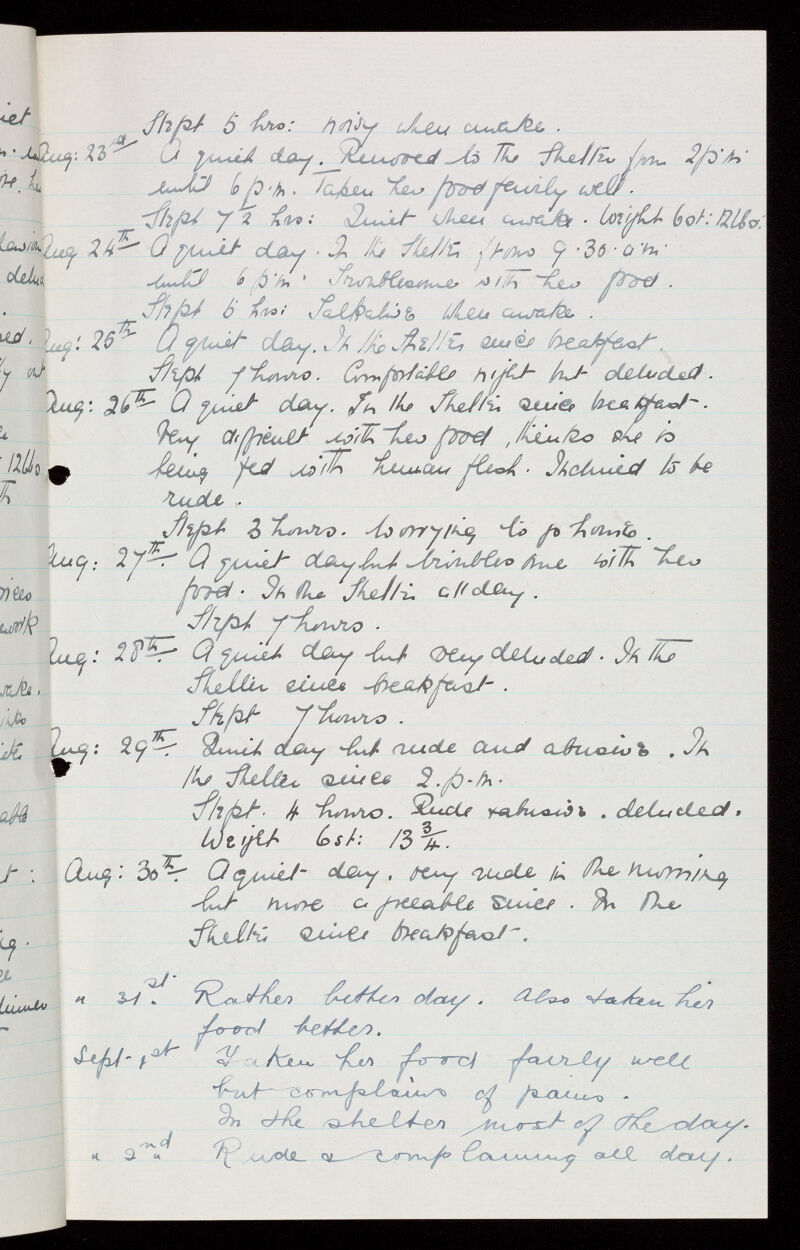 Slept 5 hrs: noisy when awake.
Aug: 23rd A quiet day. Removed to the Shelter from 2 p.m.
until 6 p.m. Taken her food fairly well.
Slept 7½ hrs: Quiet when awake. Weight 6st: 12lbs.
Aug 24th A quiet day. In the Shelter from 9.30. a.m.
until 6 p.m. Troublesome with her food.
Slept 5 hrs: Talkative when awake.
Aug: 25th A quiet day. In the Shelter since breakfast.
Slept 7 hours. Comfortable night but deluded.
Aug: 26th A quiet day. In the Shelter since breakfast.
Very difficult with her food, thinks she is
being fed with human flesh. Inclined to be
rude.
Slept 3 hours. Worrying to go home.
Aug: 27th. A quiet day but troublesome with her
food. In the Shelter all day.
Slept 7 hours.
Aug: 28th. A quiet day but very deluded. In the
Shelter since breakfast.
Slept 7 hours.
Aug: 29th. Quiet day but rude and abusive. In
the Shelter since 2. p.m.
Slept. 4 hours. Rude & abusive. deluded.
Weight 6st: 13¾.
Aug: 30th. A quiet day. very rude in the morning
but more agreeable since. In the
Shelter since breakfast.
" 31st. Rather better day. Also taken her
food better.
Sept. 1st Taken her food fairly well
but complains of pains.
In the shelter most of the day.
" 2nd Rude & complaining all day.